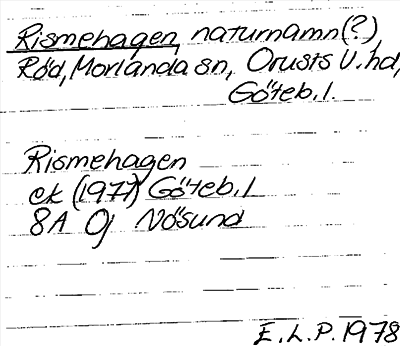 Rismehagen, naturnamn(?),
Röd, Morlanda sn, Orusts V. hd,
Göteb. l.
Rismehagen
ek (1977) Göteb. l
8A 0j Nösund
E. L. P. 1978